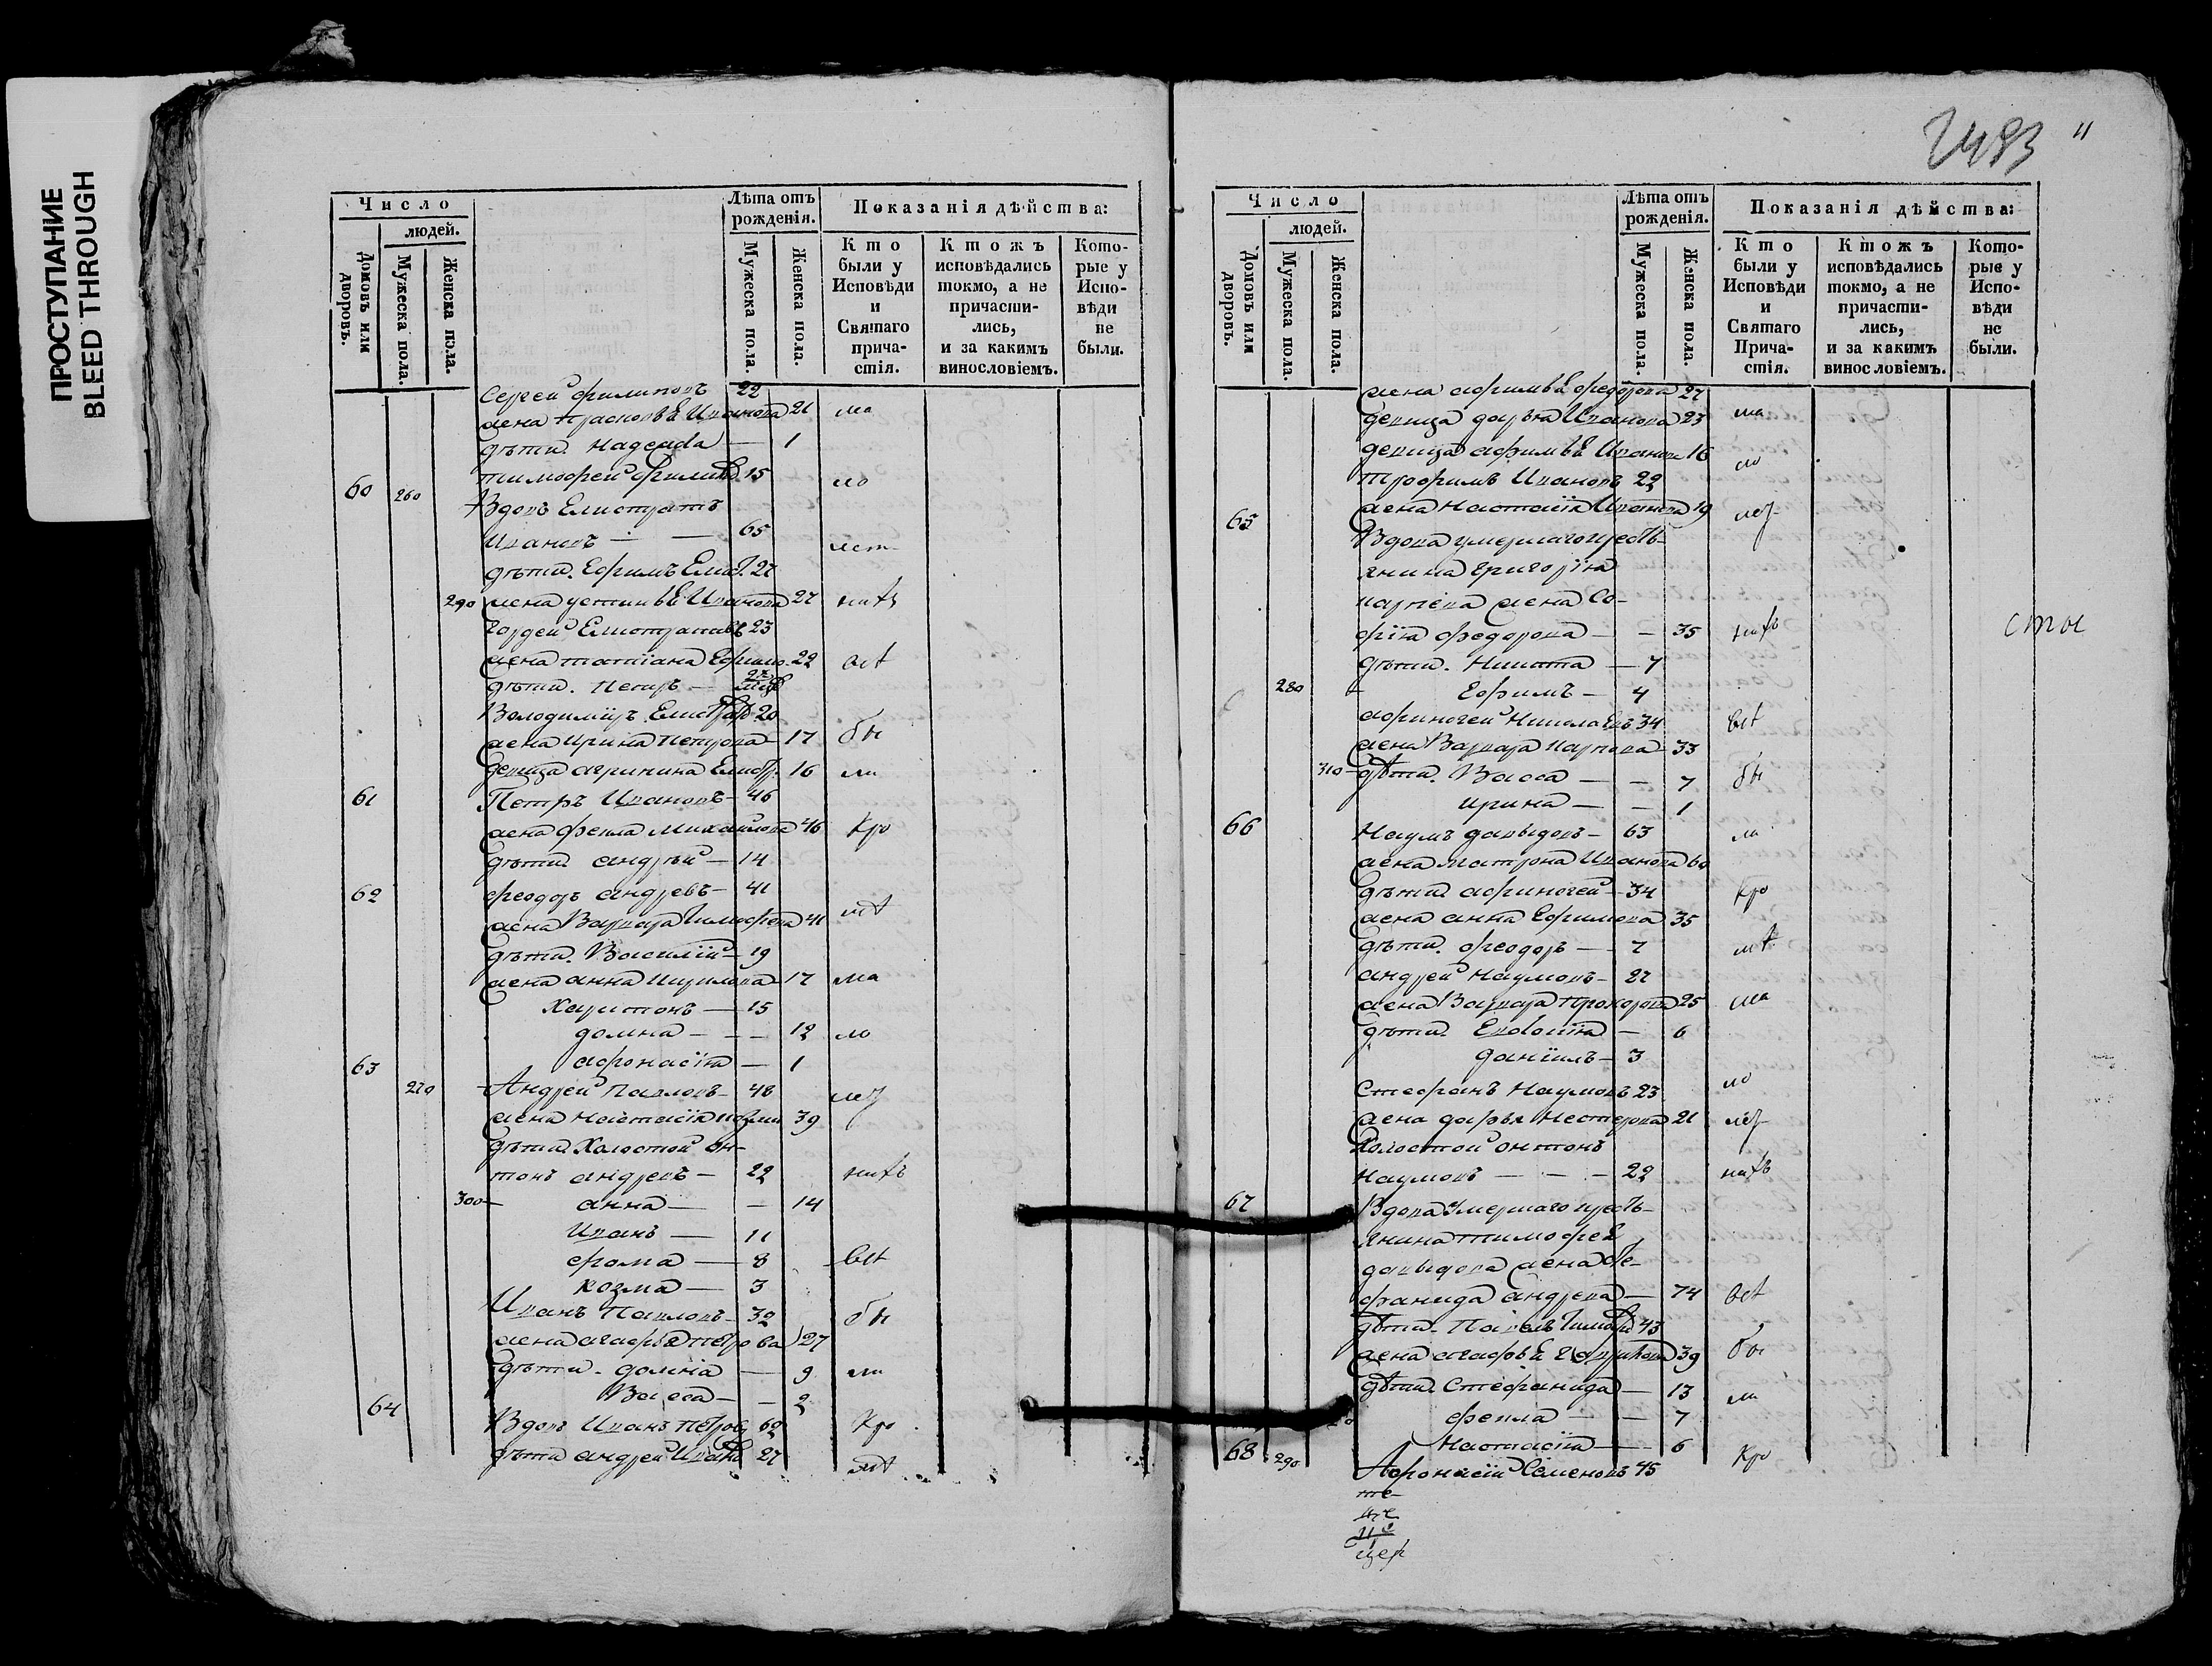 ПРОСТУПАНИЕ
BLEED THROUGH
Число
Лѣта отъ рожденія.
Показанія дѣйства:
людей.
Домовъ или дворовъ.
Мужеска пола.
Женска пола.
Мужеска пола.
Женска пола.
Кто были у Исповѣди и Святаго прича-стія.
Ктожъ исповѣдались токмо, а не причасти-лись, и за какимъ винословіемъ.
Кото-рые у Испо-вѣди не были.
Сергей филиповъ 22
жена Прасковья Иванова 21 ма
дѣти. Надежда — 1
тимофей Филип. 15 ло
60 260 Вдовъ Елистратъ
Ивановъ — — 65
дѣти. Ефимъ Елис. 27
290 жена устинья Иванова 27 нихъ
Гордей Елистратовъ 23
жена татіана Ефимо. 22 всѣ
дѣти. Петръ —
Володимиръ Елистра 20
жена Ирина Петрова 17 бы
девица агрипина Елистр. 16 ли
61 Петръ Ивановъ 46
жена фекла Михайлова 46 Кро
дѣти андрей — 14
62 феодоръ андревъ — 41
жена Варвара Тимофева 41 мѣ
дѣти. Василій — 19
жена анна Кирилова 17 ма
Харитонъ — 15
домна — — 12 ло
афонасія — 1
63 270 Андрей Павловъ 48 лет
жена настасія козми 39
дѣти Холостой Ан-
тонъ андревъ — 22 нихъ
300 анна — — 14
Иванъ — 11
фома — 8 всѣ
козма — 3
Иванъ Павловъ 32 бы
жена агафья Петрова 27
дѣти. домна — 9 ли
Васса — — 2
64 Вдовъ Иванъ Петровъ 62 Кро
дѣти андрей Иван 27 мѣ
2483 11
Число
Лѣта отъ рожденія.
Показанія дѣйства:
людей.
Домовъ или дворовъ.
Мужеска пола.
Женска пола.
Мужеска пола.
Женска пола.
Кто были у Исповѣди и Святаго Прича-стія.
Ктожъ исповѣдались токмо, а не причасти-лись, и за какимъ винословіемъ.
Кото-рые у Испо-вѣди не были.
жена афимья федорова 27
девица дарья Иванова 23 ма
девица афимья Иванова 16 ло
трофимъ Ивановъ 22
жена Настасія Иванова 19 лет
65 Вдова умершаго кресть-
янина григорія
карпова жена Со-
фія федорова — — 35 нихъ
дѣти. Никита — 7
280 Ефимъ — 4
афиногей Николаевъ 34 всѣ
жена Варвара Карпова 33
310 дѣти. Васса — — 7 бы
Ирина — — 1
66 Наумъ давыдовъ — 63 ли
жена матрона Иванова 60
дѣти афиногей — 34 Кро
жена анна Ефимова 35
дѣти. феодоръ — 7 мѣ
андрей Наумовъ — 27
жена Варвара Прохорова 25 ма
дѣти. Евдокія — 6
даніилъ — 3
Стефанъ Наумовъ 23 ло
жена дарья Нестерова 21 лет
Холостой онтонъ
Наумовъ — — 22 нихъ
67 Вдова умершаго кресть-
янина тимофея
давыдова жена Сте-
фанида андрева — 74 всѣ
дѣти. Павелъ Тимоф 43
жена агафья 39 бы
дѣти. Стефанида — 13 ли
фекла — — 7
Настасія — 6
68 290 Афонасій Семеновъ 45 Кро
сты